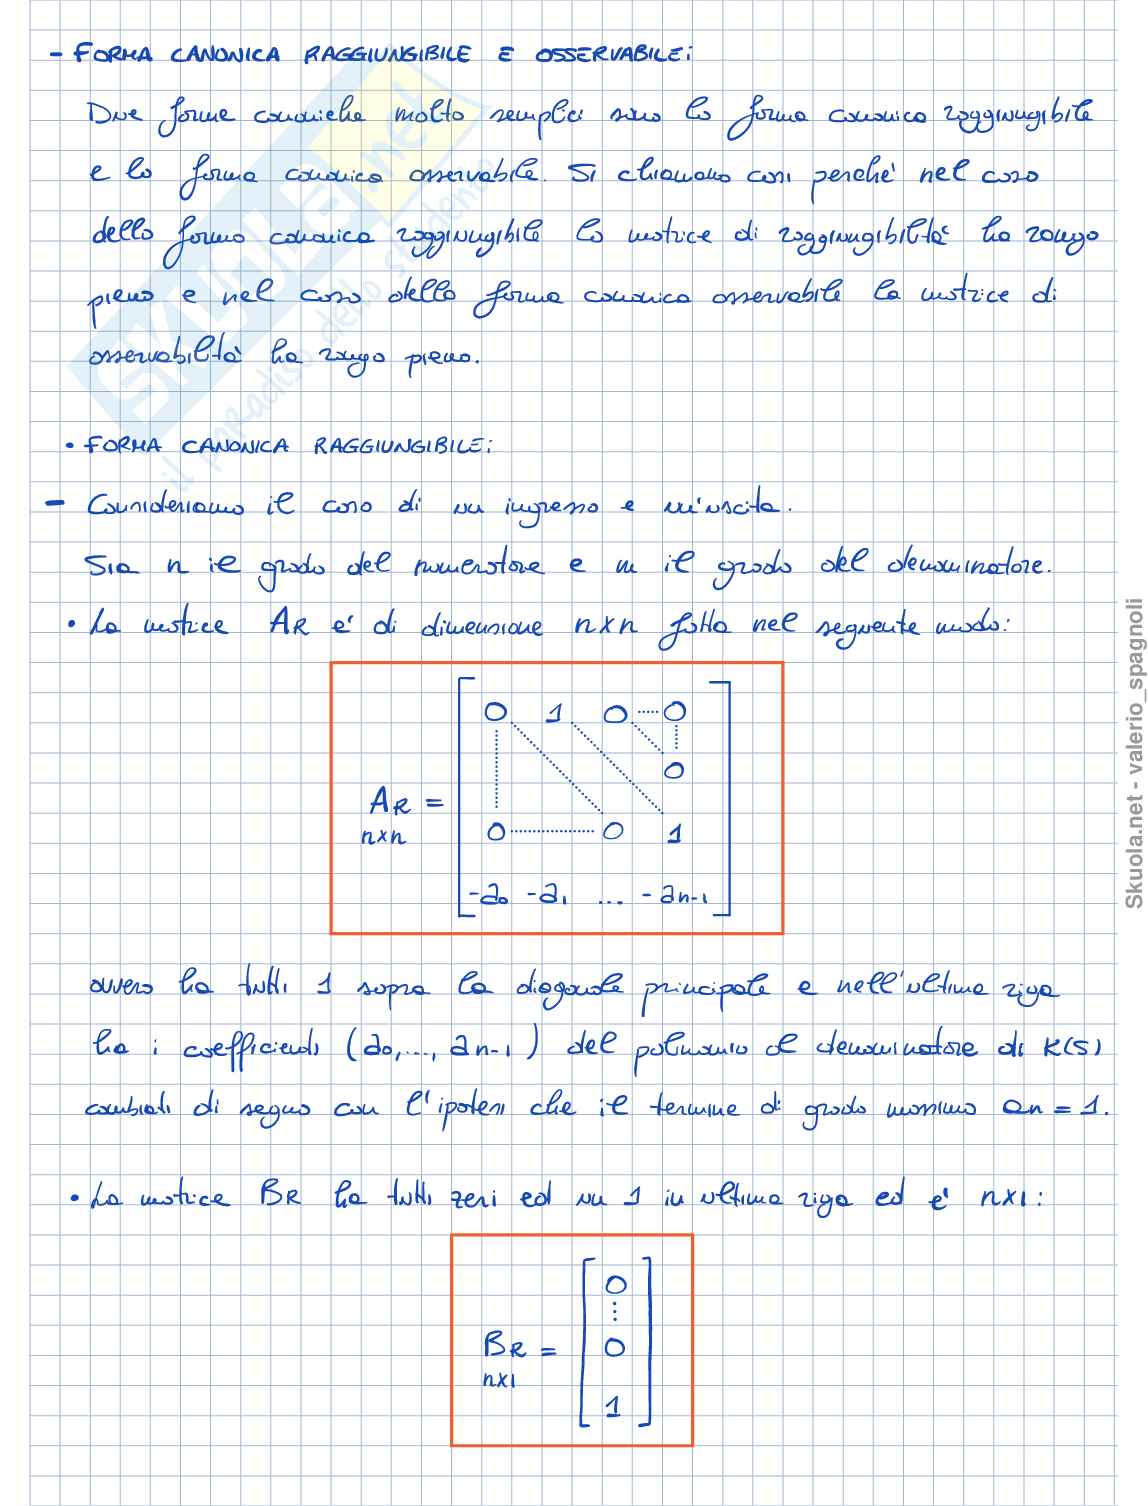 - FORMA CANONICA RAGGIUNGIBILE E OSSERVABILE:
Due forme canoniche molto semplici sono la forma canonica raggiungibile
e la forma canonica osservabile. Si chiamano così perché nel caso
della forma canonica raggiungibile la matrice di raggiungibilità ha rango
pieno e nel caso della forma canonica osservabile la matrice di
osservabilità ha rango pieno.
• FORMA CANONICA RAGGIUNGIBILE:
- Consideriamo il caso di un ingresso e un'uscita.
Sia n il grado del numeratore e m il grado del denominatore.
• La matrice AR è di dimensione nxn fatta nel seguente modo:
0 1 0 ... 0
0
AR =
nxn
0 ... 0 1
-a0 -a1 ... -an-1
ovvero ha tutti 1 sopra la diagonale principale e nell'ultima riga
ha i coefficienti (a0,..., an-1) del polinomio al denominatore di K(s)
cambiati di segno con l'ipotesi che il termine di grado massimo an = 1.
• La matrice BR ha tutti zeri ed un 1 in ultima riga ed è nx1:
0
⋮
BR = 0
nx1
1
SKUOLA.net
il paradiso dello studente
Skuola.net - valerio_spagnoli